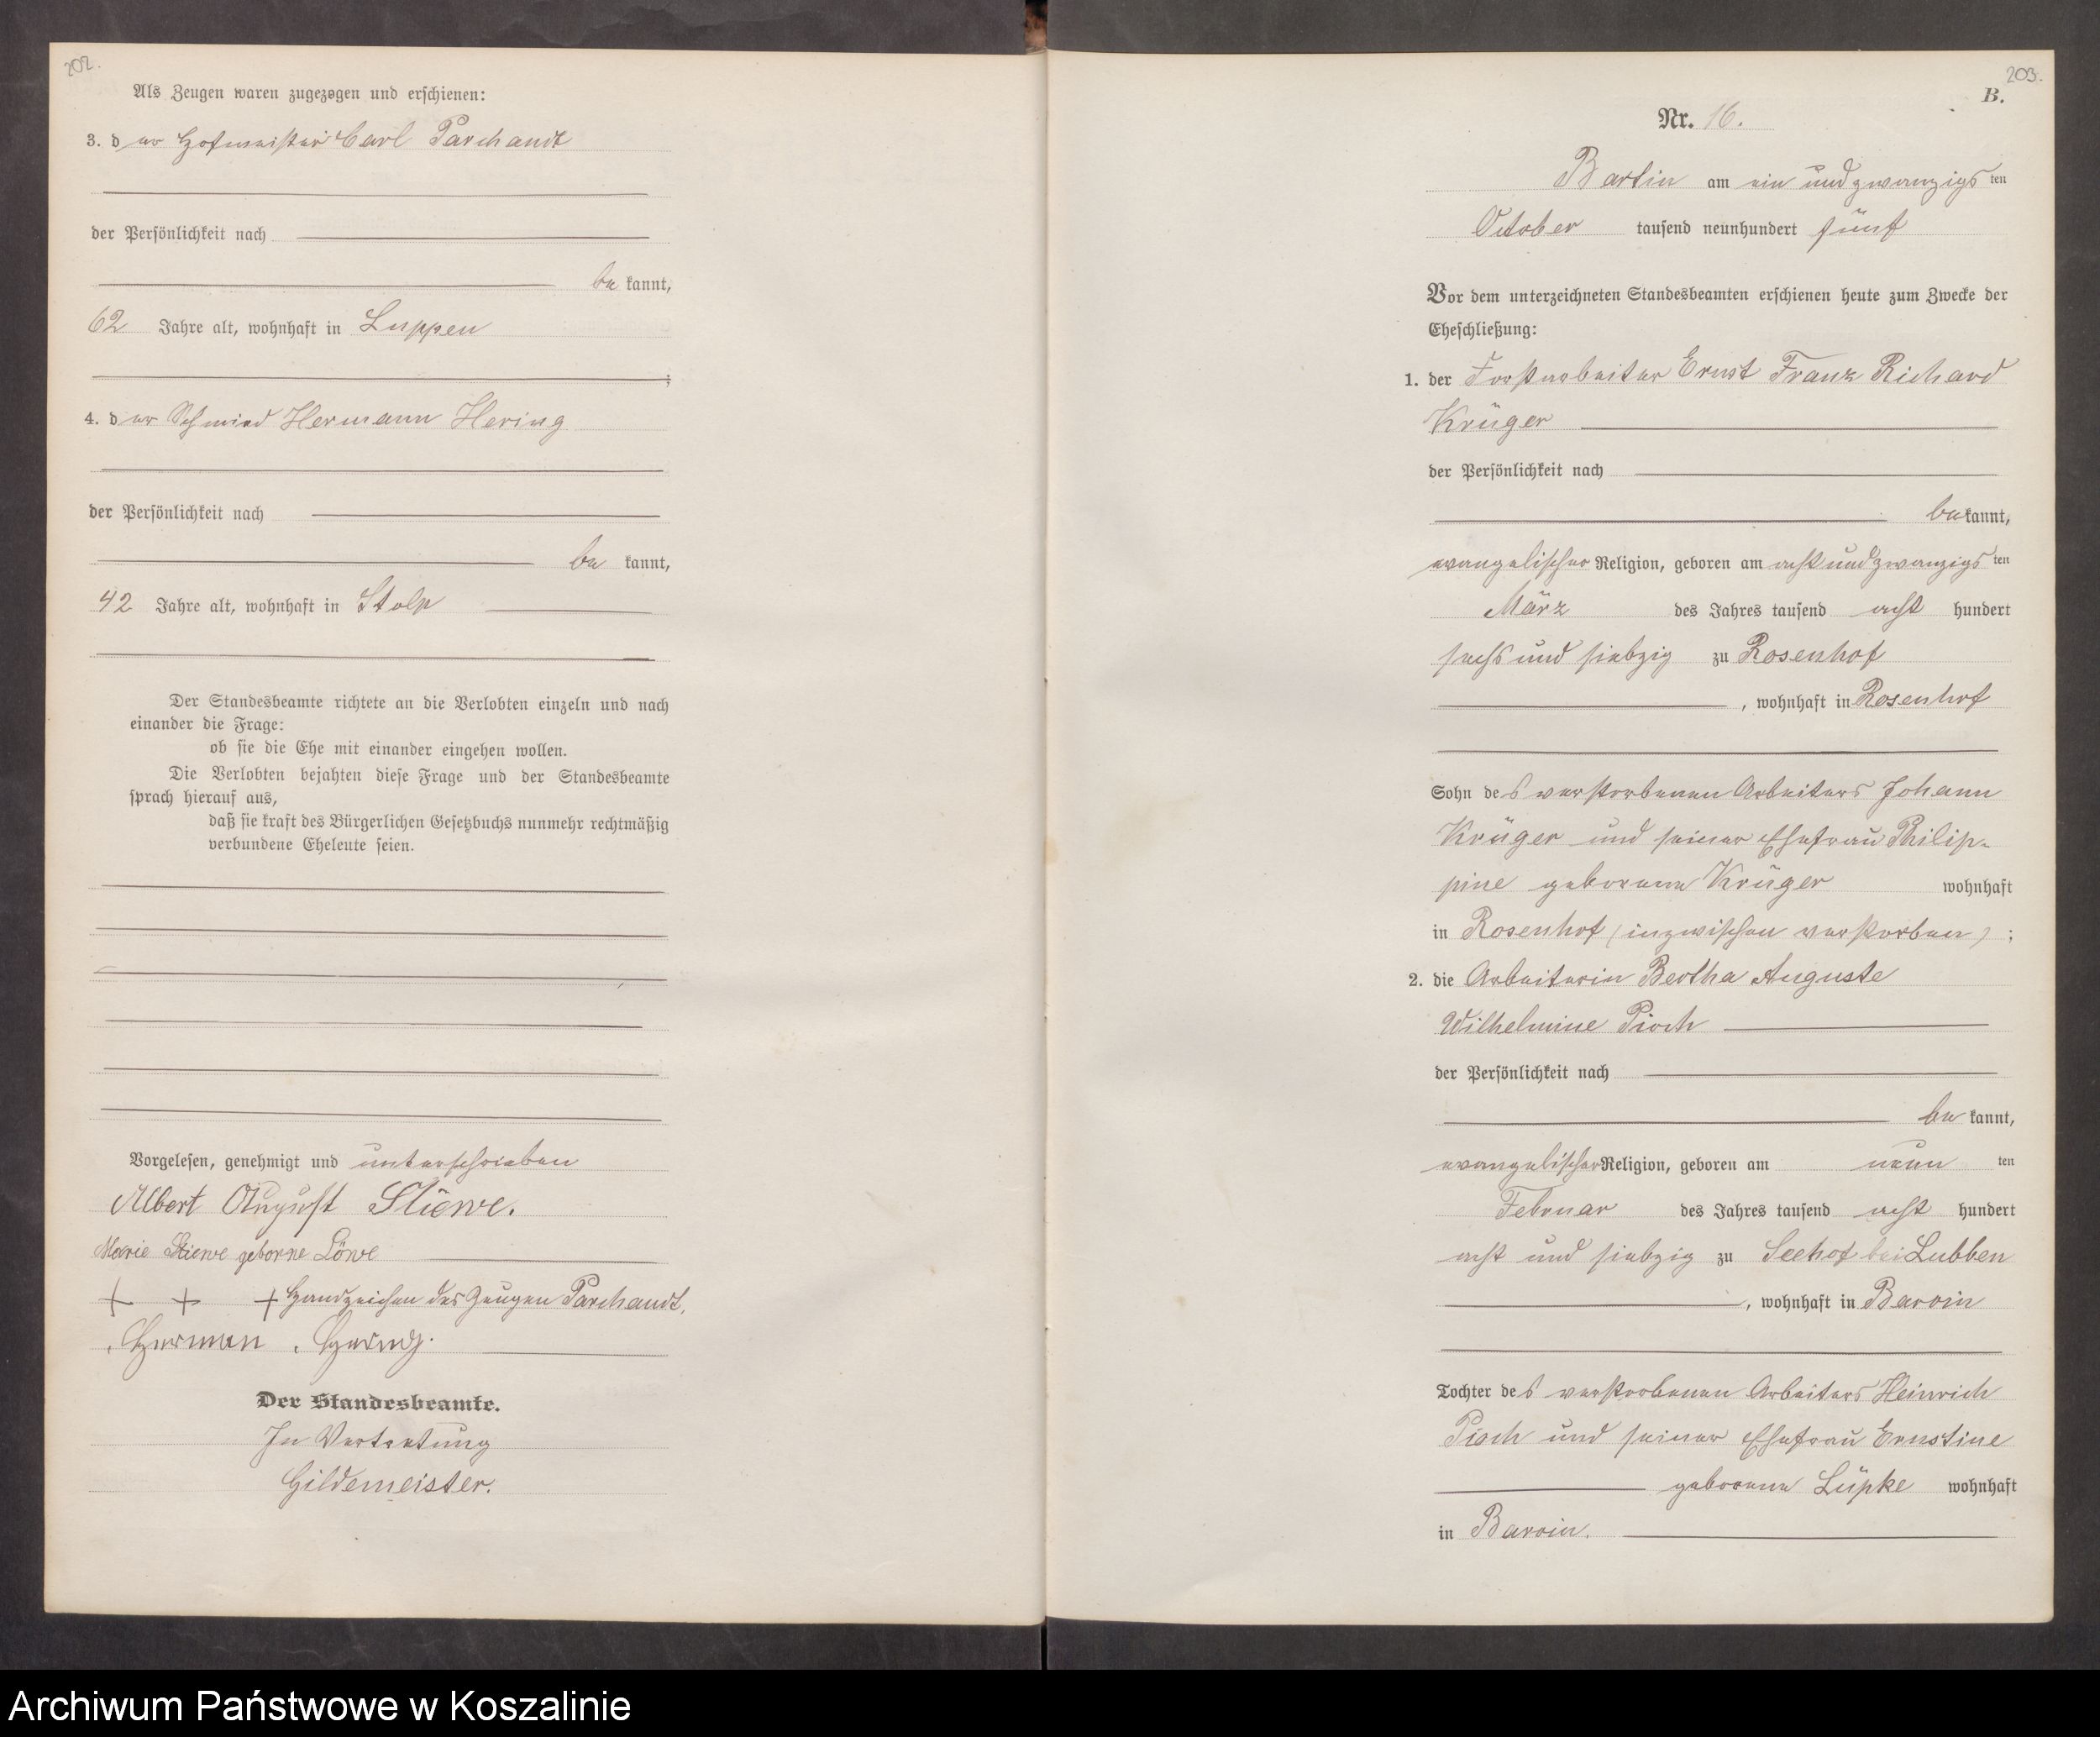 202.
Als Zeugen waren zugezogen und erschienen:
3. der Hofmeister Carl Parchandt
der Persönlichkeit nach
be kannt,
62 Jahre alt, wohnhaft in Luppen
;
4. der Schmied Hermann Hering
der Persönlichkeit nach
be kannt,
42 Jahre alt, wohnhaft in Stolp
Der Standesbeamte richtete an die Verlobten einzeln und nach
einander die Frage:
ob sie die Ehe mit einander eingehen wollen.
Die Verlobten bejahten diese Frage und der Standesbeamte
sprach hierauf aus,
daß sie kraft des Bürgerlichen Gesetzbuchs nunmehr rechtmäßig
verbundene Eheleute seien.
Vorgelesen, genehmigt und unterschrieben
Albert August Stiewe.
Marie Stiewe geborne Löwe
+ + + Handzeichen des Zeugen Parchandt,
Herman Hering.
Der Standesbeamte.
In Vertretung
Gildemeister.
203.
B.
Nr. 16.
Bartin am ein und zwanzigs ten
October tausend neunhundert fünf
Vor dem unterzeichneten Standesbeamten erschienen heute zum Zwecke der
Eheschließung:
1. der Forstarbeiter Ernst Franz Richard
Krüger
der Persönlichkeit nach
be kannt,
evangelischer Religion, geboren am acht und zwanzigs ten
März des Jahres tausend acht hundert
sechs und siebzig zu Rosenhof
, wohnhaft in Rosenhof
Sohn des verstorbenen Arbeiters Johann
Krüger und seiner Ehefrau Philip-
pine geborene Krüger wohnhaft
in Rosenhof (inzwischen verstorben) ;
2. die Arbeiterin Bertha Auguste
Wilhelmine Pioch
der Persönlichkeit nach
be kannt,
evangelischer Religion, geboren am neun ten
Februar des Jahres tausend acht hundert
acht und siebzig zu Seehof bei Lubben
, wohnhaft in Barvin
Tochter des verstorbenen Arbeiters Heinrich
Pioch und seiner Ehefrau Ernstine
geborene Lüpke wohnhaft
in Barvin.
Archiwum Państwowe w Koszalinie